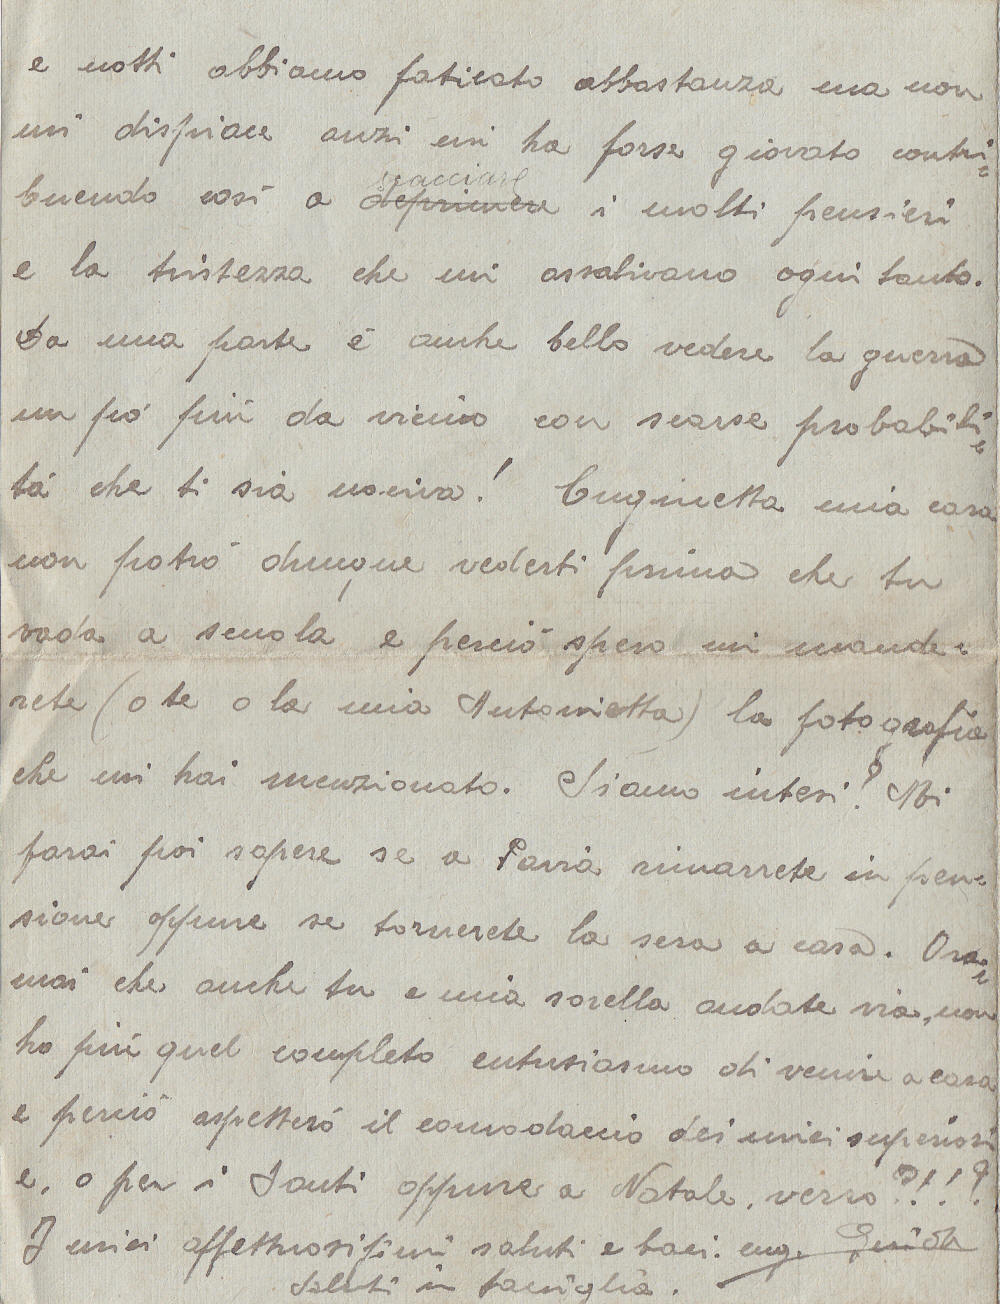 e notti abbiamo faticato abbastanza ma non
mi dispiace anzi mi ha forse giovato contri=
buendo così a scacciare deprimere i molti pensieri
e la tristezza che mi assalivano ogni tanto.
Da una parte è anche bello vedere la guerra
un pó piú da vicino con scarse probabili=
tá che ti sia nociva! Cuginetta mia cara
non potró dunque vederti prima che tu
vada a scuola e perció spero mi mande=
rete (o te o la mia Antonietta) la fotografia
che mi hai menzionato. Siamo intesi! Mi
farai poi sapere se a Pavia rimarrete in pen=
sione oppure se tornerete la sera a casa. Ora=
mai che anche tu e mia sorella andate via, non
ho piú quel completo entusiasmo di venire a casa
e perció aspetteró il comodaccio dei miei superiori
e, o per i Santi oppure a Natale, verro?!!!
I miei affettuosissimi saluti e baci. cug. Guido
Saluti in famiglia.